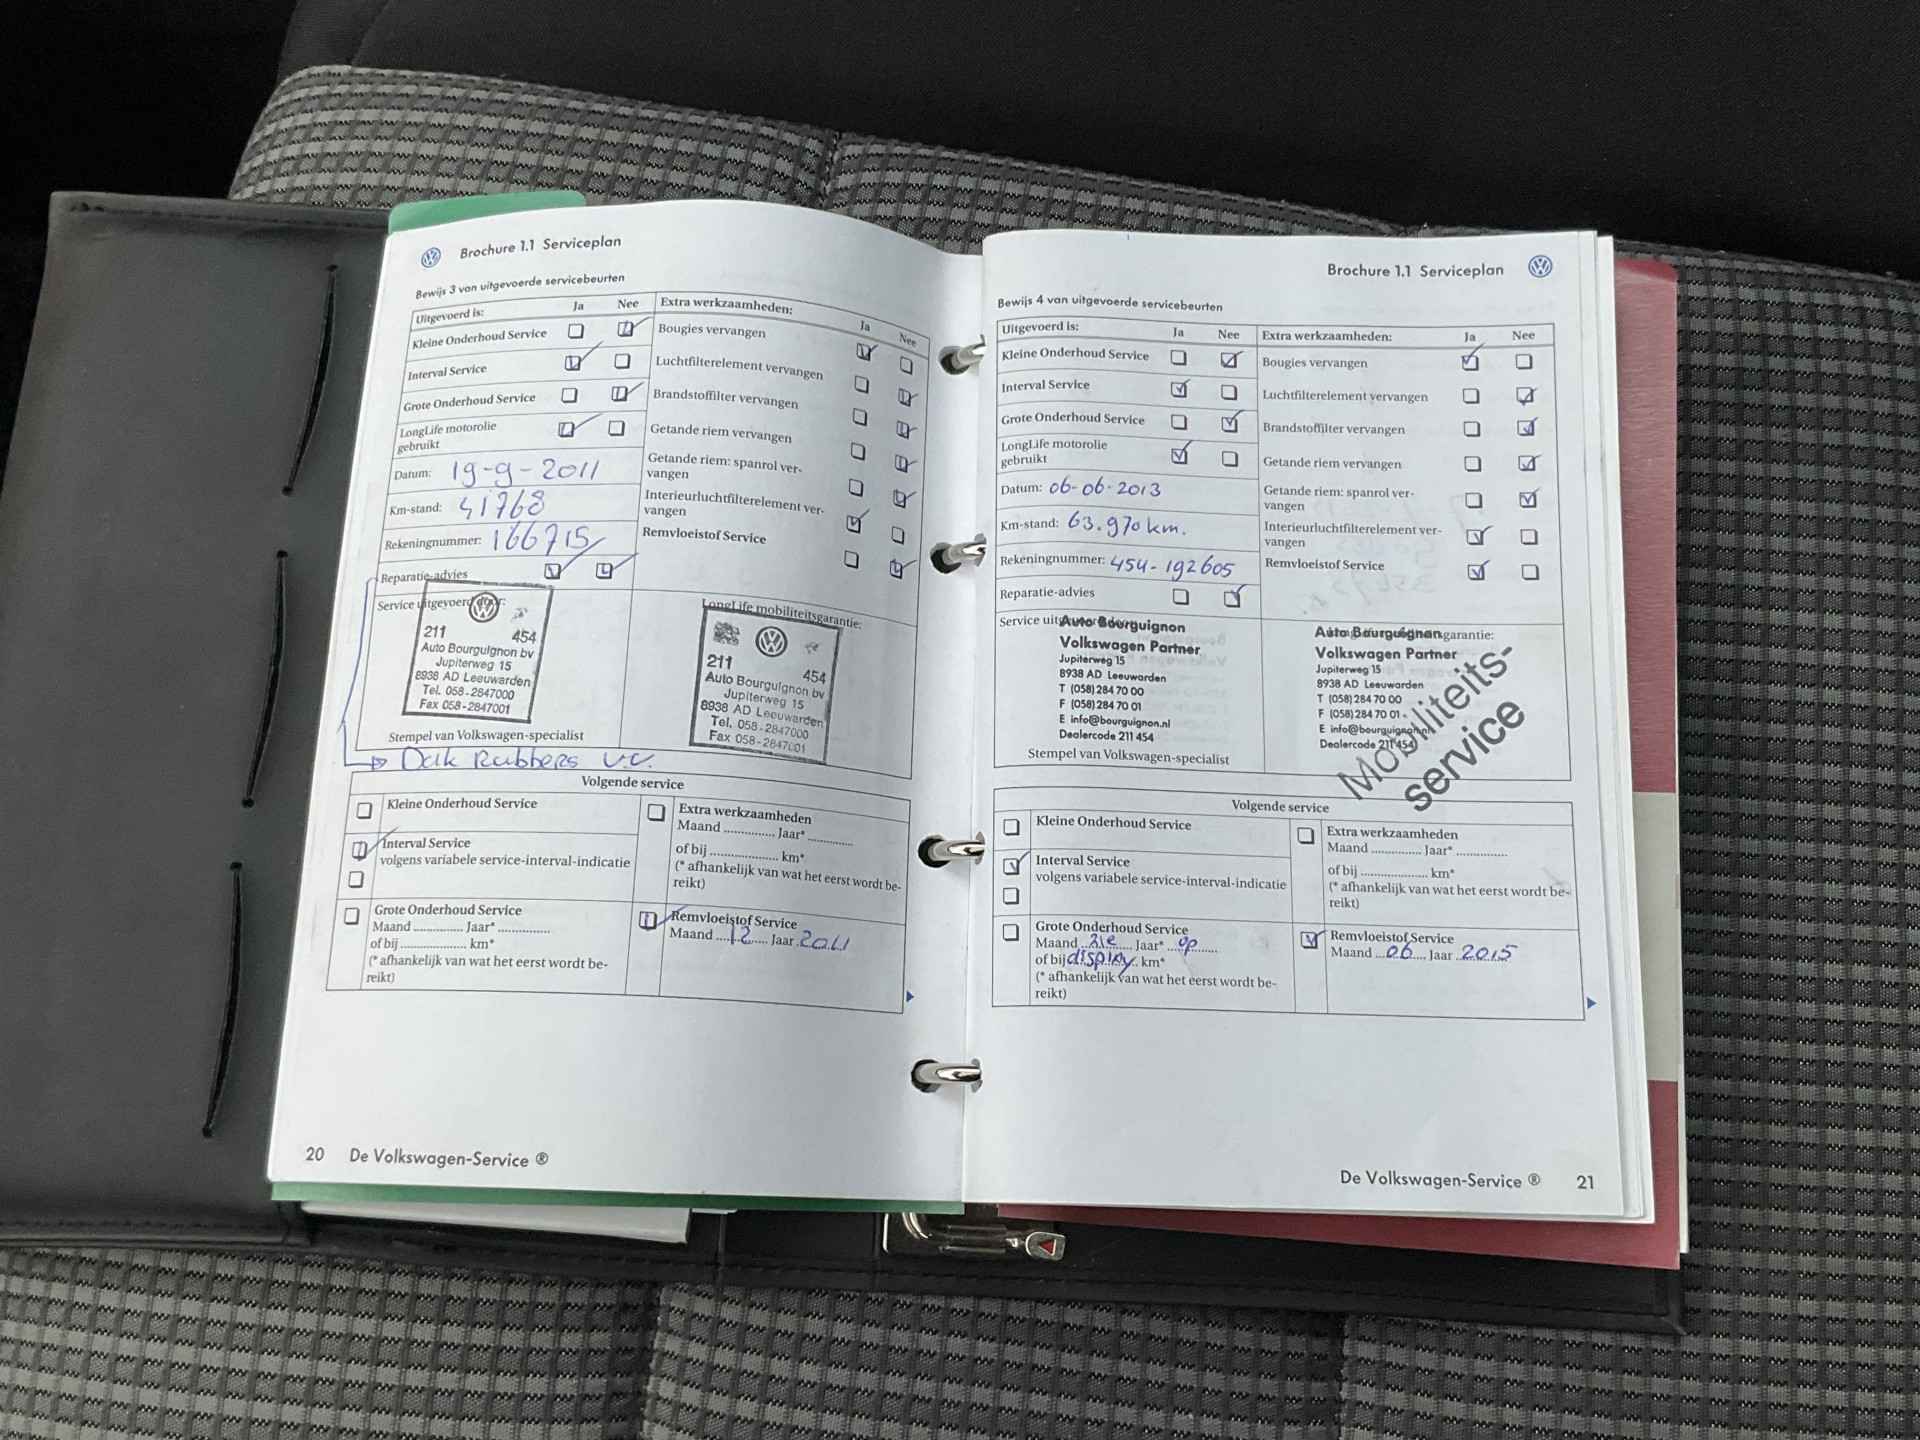 Brochure 1.1 Serviceplan
Bewijs 3 van uitgevoerde servicebeurten
Uitgevoerd is: Ja Nee
Kleine Onderhoud Service
Interval Service
Grote Onderhoud Service
LongLife motorolie
gebruikt
Datum: 19-9-2011
Km-stand: 41768
Rekeningnummer: 166715
Reparatie-advies
Extra werkzaamheden: Ja Nee
Bougies vervangen
Luchtfilterelement vervangen
Brandstoffilter vervangen
Getande riem vervangen
Getande riem: spanrol ver-
vangen
Interieurluchtfilterelement ver-
vangen
Remvloeistof Service
Service uitgevoerd door:
211 454
Auto Bourguignon bv
Jupiterweg 15
8938 AD Leeuwarden
Tel. 058-2847000
Fax 058-2847001
Stempel van Volkswagen-specialist
LongLife mobiliteitsgarantie:
211 454
Auto Bourguignon bv
Jupiterweg 15
8938 AD Leeuwarden
Tel. 058-2847000
Fax 058-2847001
Dak Rubbers v.v.
Volgende service
Kleine Onderhoud Service
Interval Service
volgens variabele service-interval-indicatie
Grote Onderhoud Service
Maand .............. Jaar* ..............
of bij .................. km*
(* afhankelijk van wat het eerst wordt be-
reikt)
Extra werkzaamheden
Maand .............. Jaar* ............
of bij .................. km*
(* afhankelijk van wat het eerst wordt be-
reikt)
Remvloeistof Service
Maand 12 Jaar 2011
20 De Volkswagen-Service ®
Brochure 1.1 Serviceplan
Bewijs 4 van uitgevoerde servicebeurten
Uitgevoerd is: Ja Nee
Kleine Onderhoud Service
Interval Service
Grote Onderhoud Service
LongLife motorolie
gebruikt
Datum: 06-06-2013
Km-stand: 63.970 km.
Rekeningnummer: 454-192605
Reparatie-advies
Extra werkzaamheden: Ja Nee
Bougies vervangen
Luchtfilterelement vervangen
Brandstoffilter vervangen
Getande riem vervangen
Getande riem: spanrol ver-
vangen
Interieurluchtfilterelement ver-
vangen
Remvloeistof Service
Service
Auto Bourguignon
Volkswagen Partner
Jupiterweg 15
8938 AD Leeuwarden
T (058) 284 70 00
F (058) 284 70 01
E info@bourguignon.nl
Dealercode 211 454
Stempel van Volkswagen-specialist
Auto Bourguignon
Volkswagen Partner
Jupiterweg 15
8938 AD Leeuwarden
T (058) 284 70 00
F (058) 284 70 01
E info@bourguignon.nl
Dealercode 211 454
Mobiliteits-
service
Volgende service
Kleine Onderhoud Service
Interval Service
volgens variabele service-interval-indicatie
Grote Onderhoud Service
Maand zie Jaar* op
of bij display km*
(* afhankelijk van wat het eerst wordt be-
reikt)
Extra werkzaamheden
Maand .............. Jaar* ..............
of bij .................. km*
(* afhankelijk van wat het eerst wordt be-
reikt)
Remvloeistof Service
Maand 06 Jaar 2015
De Volkswagen-Service ® 21